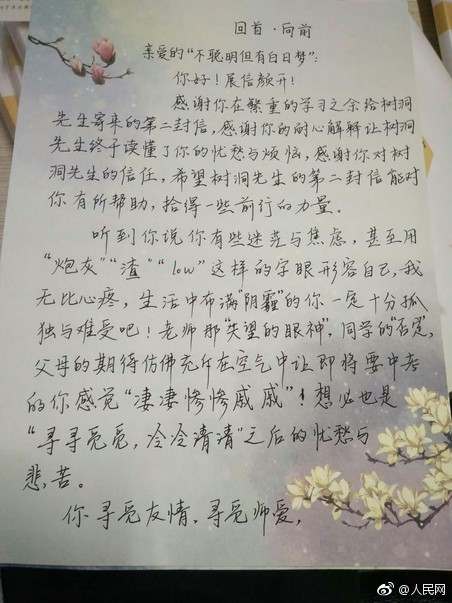 回首·向前
亲爱的“不聪明但有白日梦”:
你好！展信颜开！
感谢你在繁重的学习之余给树洞
先生寄来的第二封信，感谢你的耐心解释让树洞
先生终于读懂了你的忧愁与烦恼，感谢你对树
洞先生的信任，希望树洞先生的第二封信能对
你有所帮助，拾得一些前行的力量。
听到你说你有些迷茫与焦虑，甚至用
“炮灰”“渣”“low”这样的字眼形容自己，我
无比心疼，生活中布满“阴霾”的你一定十分孤
独与难受吧！老师那“失望的眼神”，同学的“否定”，
父母的期待仿佛充斥在空气中让即将要中考
的你感觉“凄凄惨惨戚戚”！想必也是
“寻寻觅觅，冷冷清清”之后的忧愁与
悲苦。
你寻觅友情，寻觅师爱，
@人民网